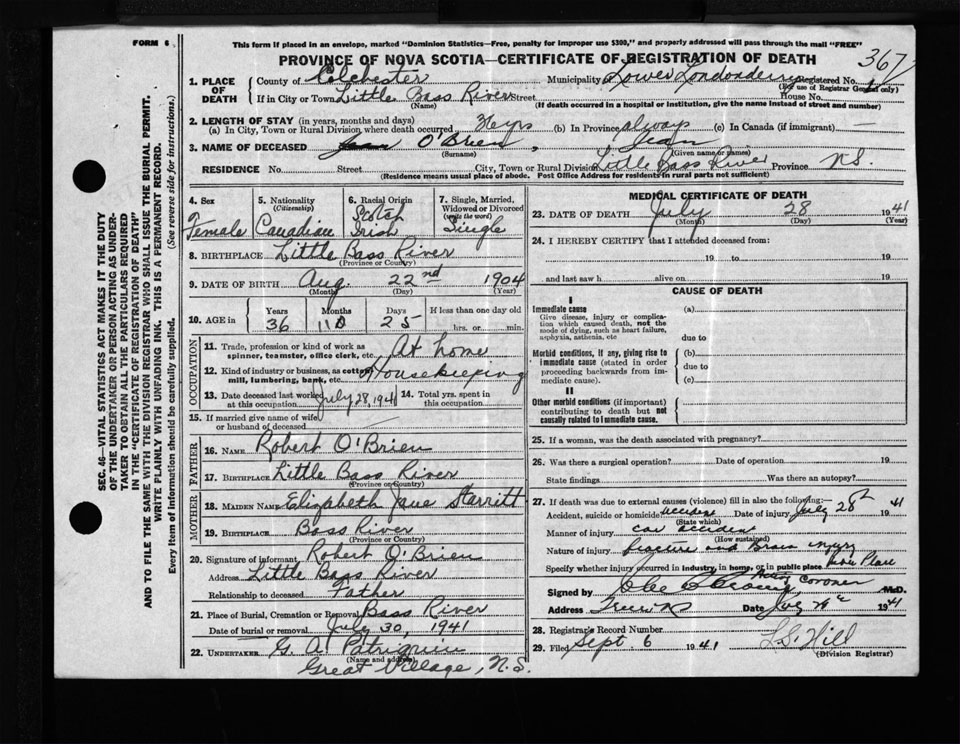 FORM 6
This form if placed in an envelope, marked "Dominion Statistics—Free, penalty for improper use $300," and properly addressed will pass through the mail "FREE"
PROVINCE OF NOVA SCOTIA—CERTIFICATE OF REGISTRATION OF DEATH
367
1. PLACE OF DEATH County of Colchester Municipality Lower Londonderry Registered No.
(For use of Registrar General only)
If in City or Town Little Bass River Street House No.
(Name) (If death occurred in a hospital or institution, give the name instead of street and number)
2. LENGTH OF STAY (in years, months and days)
(a) In City, Town or Rural Division where death occurred yrs (b) In Province always (c) In Canada (if immigrant) —
3. NAME OF DECEASED O'Brien, Jean
(Surname) (Given name or names)
RESIDENCE No. Street City, Town or Rural Division Little Bass River Province N.S.
(Residence means usual place of abode. Post Office Address for residents in rural parts not sufficient)
4. Sex Female
5. Nationality (Citizenship) Canadian
6. Racial Origin Scotch Irish
7. Single, Married, Widowed or Divorced (write the word) Single
8. BIRTHPLACE Little Bass River
(Province or Country)
9. DATE OF BIRTH Aug. 22nd 1904
(Month) (Day) (Year)
10. AGE in Years Months Days If less than one day old
36 11 25 hrs. or min.
OCCUPATION
11. Trade, profession or kind of work as spinner, teamster, office clerk, etc. At home
12. Kind of industry or business, as cotton mill, lumbering, bank, etc. Housekeeping
13. Date deceased last worked at this occupation July 28, 1941 14. Total yrs. spent in this occupation
15. If married give name of wife or husband of deceased
FATHER
16. NAME Robert O'Brien
17. BIRTHPLACE Little Bass River
(Province or Country)
MOTHER
18. MAIDEN NAME Elizabeth Jane Sterritt
19. BIRTHPLACE Bass River
(Province or Country)
20. Signature of informant Robert O'Brien
Address Little Bass River
Relationship to deceased Father
21. Place of Burial, Cremation or Removal Bass River
Date of burial or removal July 30, 1941
22. UNDERTAKER G. A. Patriquin
(Name and address)
Great Village, N.S.
MEDICAL CERTIFICATE OF DEATH
23. DATE OF DEATH July 28 1941
(Month) (Day) (Year)
24. I HEREBY CERTIFY that I attended deceased from:
19 to 19
and last saw h alive on 19
CAUSE OF DEATH
I
Immediate cause (a)
Give disease, injury or complication which caused death, not the mode of dying, such as heart failure, asphyxia, asthenia, etc
due to
Morbid conditions, if any, giving rise to immediate cause (stated in order proceeding backwards from immediate cause).
(b)
due to
(c)
II
Other morbid conditions (if important) contributing to death but not causally related to immediate cause.
25. If a woman, was the death associated with pregnancy?
26. Was there a surgical operation? Date of operation 19
State findings Was there an autopsy?
27. If death was due to external causes (violence) fill in also the following:—
Accident, suicide or homicide accident Date of injury July 28th 1941
(State which)
Manner of injury car accident
(How sustained)
Nature of injury fracture and Brain injury
Specify whether injury occurred in industry, in home, or in public place Public Place
Signed by Acting Coroner M.D.
Address Truro NS Date 1941
28. Registrar's Record Number
29. Filed Sept. 6 1941 L.S. Hill
(Division Registrar)
SEC. 46—VITAL STATISTICS ACT MAKES IT THE DUTY OF THE UNDERTAKER OR PERSON ACTING AS UNDERTAKER TO OBTAIN ALL THE PARTICULARS REQUIRED IN THE "CERTIFICATE OF REGISTRATION OF DEATH"
AND TO FILE THE SAME WITH THE DIVISION REGISTRAR WHO SHALL ISSUE THE BURIAL PERMIT.
WRITE PLAINLY WITH UNFADING INK. THIS IS A PERMANENT RECORD.
Every item of information should be carefully supplied. (See reverse side for instructions.)